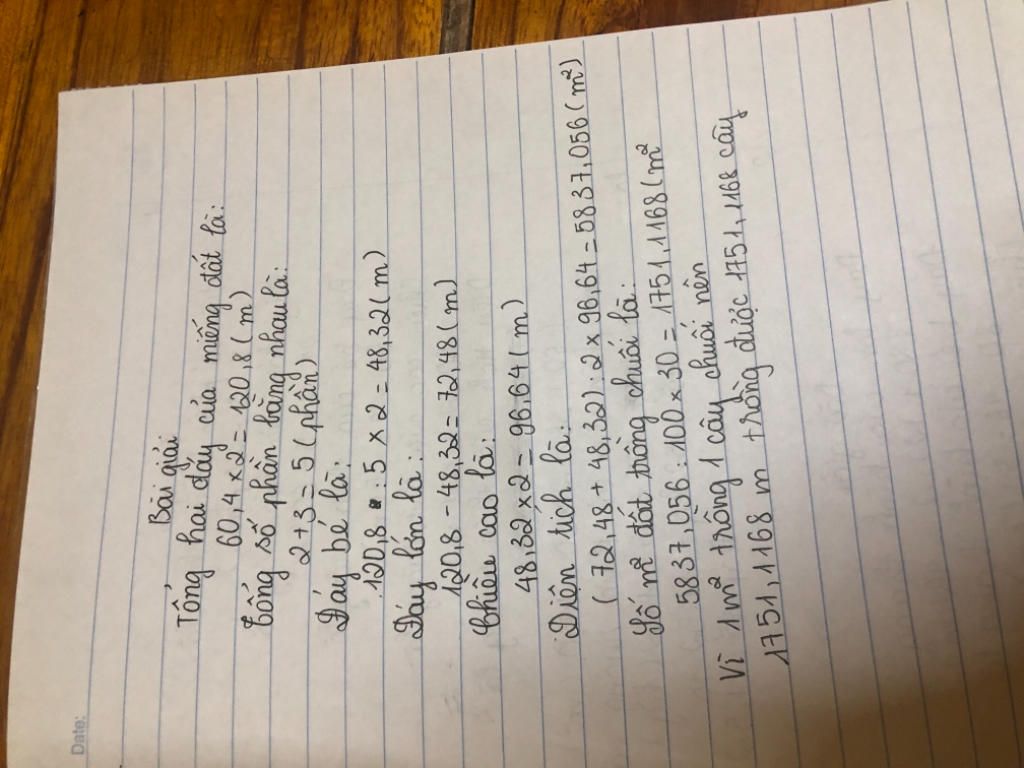 Date:
Bài giải
Tổng hai đáy của miếng đất là:
60,4 x 2 = 120,8 (m)
Tổng số phần bằng nhau là:
2 + 3 = 5 (phần)
Đáy bé là:
120,8 : 5 x 2 = 48,32 (m)
Đáy lớn là:
120,8 - 48,32 = 72,48 (m)
Chiều cao là:
48,32 x 2 = 96,64 (m)
Diện tích là:
(72,48 + 48,32) : 2 x 96,64 = 5837,056 (m²)
Số m² đất trồng chuối là:
5837,056 : 100 x 30 = 1751,1168 (m²
Vì 1 m² trồng 1 cây chuối nên
1751,1168 m trồng được 1751,1168 cây